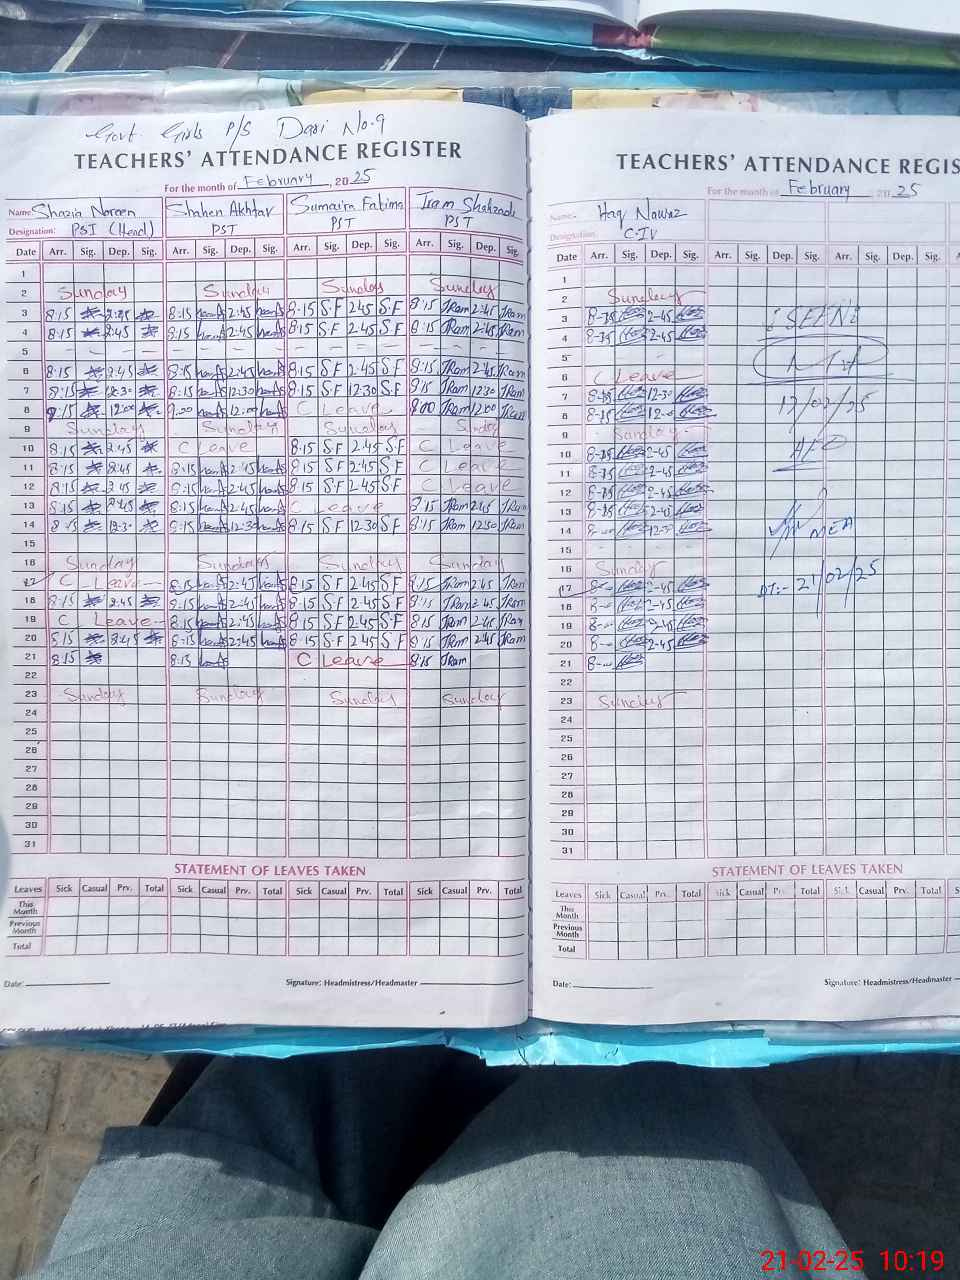 Govt. Girls P/S Dasi No.9
TEACHERS' ATTENDANCE REGISTER
For the month of February, 2025
Name: Shazia Noreen Shahen Akhtar Sumaira Fatima Iram Shahzadi
Designation: PST (Head) PST PST PST
Date Arr. Sig. Dep. Sig. Arr. Sig. Dep. Sig. Arr. Sig. Dep. Sig. Arr. Sig. Dep. Sig.
1
2 Sunday Sunday Sunday Sunday
3 8:15 2:45 8:15 2:45 8-15 S.F 2.45 S.F 8:15 IRam 2:45 IRam
4 8:15 2:45 8:15 2:45 8-15 S.F 2.45 S.F 8:15 IRam 2:45 IRam
5
6 8:15 2:45 8:15 2:45 8.15 S.F 2.45 S.F 8:15 IRam 2:45 IRam
7 8:15 12:30 8:15 12:30 8.15 S.F 12.30 S.F 8:15 IRam 12:30 IRam
8 12:00 9:00 12:00 C Leave 9:00 IRam 12:00
9 Sunday Sunday Sunday Sunday
10 8:15 2:45 C Leave 8.15 S.F 2.45 S.F C Leave
11 8:15 2:45 8:15 2:45 8.15 S.F 2.45 S.F C Leave
12 8:15 2:45 8:15 2:45 8.15 S.F 2.45 S.F C Leave
13 8:15 2:45 8:15 2:45 C Leave 8:15 IRam 2:45 IRam
14 8:15 12:30 8:15 12:30 8.15 S.F 12.30 S.F 8:15 IRam 12:30 IRam
15
16 Sunday Sunday Sunday Sunday
17 C Leave 8:15 2:45 8.15 S.F 2.45 S.F 8:15 IRam 2:45 IRam
18 8:15 2:45 8:15 2:45 8.15 S.F 2.45 S.F 8:15 IRam 2:45 IRam
19 C Leave 8:15 2:45 8.15 S.F 2.45 S.F 8:15 IRam 2:45 IRam
20 8:15 2:45 8:15 2:45 8.15 S.F 2.45 S.F 8:15 IRam 2:45 IRam
21 8:15 8:15 C Leave 8:15 IRam
22
23 Sunday Sunday Sunday Sunday
24
25
26
27
28
29
30
31
STATEMENT OF LEAVES TAKEN
Leaves Sick Casual Prv. Total Sick Casual Prv. Total Sick Casual Prv. Total Sick Casual Prv. Total
This Month
Previous Month
Total
Date: Signature: Headmistress/Headmaster
TEACHERS' ATTENDANCE REGIS
For the month of February 2025
Name. Haq Nawaz
Designation. C-IV
Date Arr. Sig. Dep. Sig. Arr. Sig. Dep. Sig. Arr. Sig. Dep. Sig.
1
2 Sunday
3 2-45
4 2-45
5
6 C Leave
7 12-30
8
9 Sunday
10 2-45
11 2-45
12 2-45
13 2-45
14 12-30
15
16 Sunday
17 2-45
18 2-45
19 2-45
20 2-45
21
22
23 Sunday
24
25
26
27
28
29
30
31
SEEN
12/02/25
MEA
DT:- 21/02/25
STATEMENT OF LEAVES TAKEN
Leaves Sick Casual Prv. Total Sick Casual Prv. Total Sick Casual Prv. Total
This Month
Previous Month
Total
Date: Signature: Headmistress/Headmaster
21-02-25 10:19